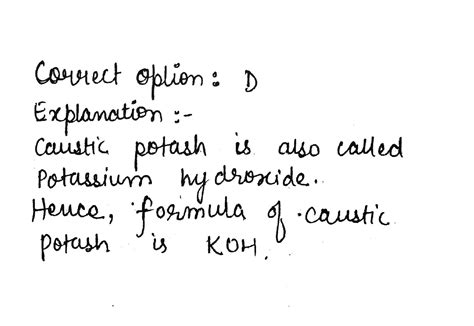 Correct option: D
Explanation :-
Caustic potash is also called
Potassium hydroxide.
Hence, formula of caustic
potash is KOH.